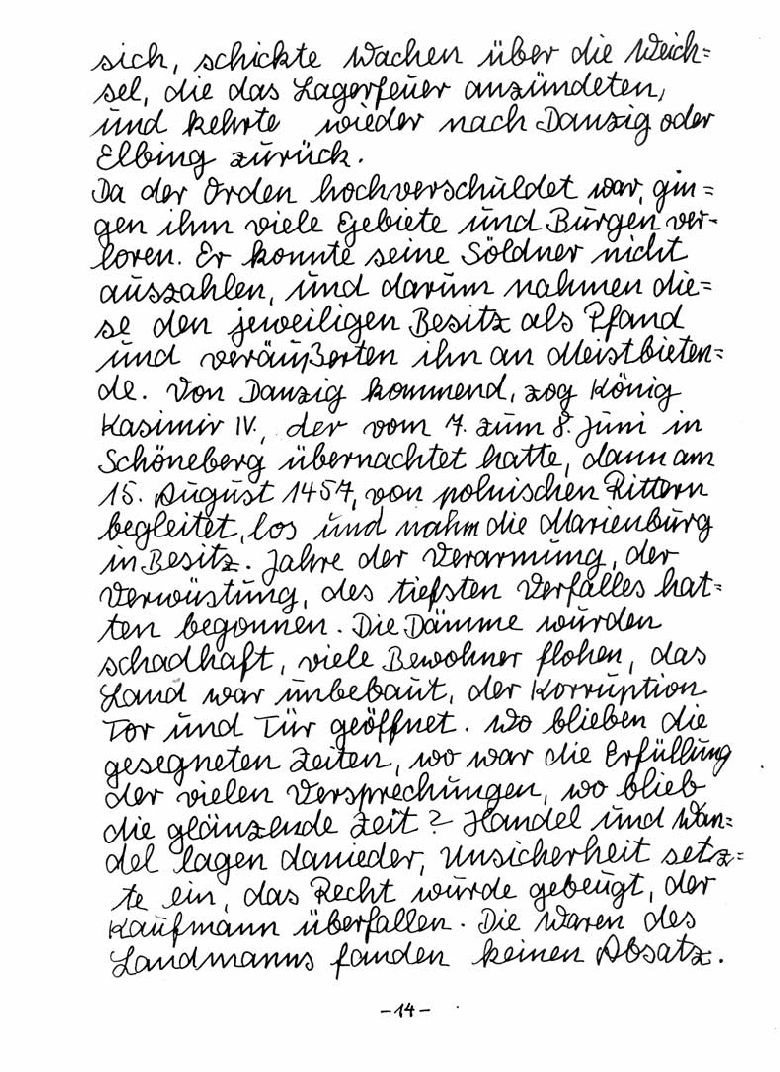 sich, schickte Wachen über die Weich=
sel, die das Lagerfeuer anzündeten,
und kehrte wieder nach Danzig oder
Elbing zurück.
Da der Orden hochverschuldet war, gin=
gen ihm viele Gebiete und Burgen ver-
loren. Er konnte seine Söldner nicht
auszahlen, und darum nahmen die=
se den jeweiligen Besitz als Pfand
und veräußerten ihn an Meistbieten=
de. Von Danzig kommend, zog König
Kasimir IV., der vom 7. zum 8. Juni in
Schöneberg übernachtet hatte, dann am
15. August 1457, von polnischen Rittern
begleitet, los und nahm die Marienburg
in Besitz. Jahre der Verarmung, der
Verwüstung, des tiefsten Verfalles hat=
ten begonnen. Die Dämme wurden
schadhaft, viele Bewohner flohen, das
Land war unbebaut, der Korruption
Tor und Tür geöffnet. Wo blieben die
gesegneten Zeiten, wo war die Erfüllung
der vielen Versprechungen, wo blieb
die glänzende Zeit? Handel und Wan=
del lagen danieder, Unsicherheit setz=
te ein, das Recht wurde gebeugt, der
Kaufmann überfallen. Die Waren des
Landmanns fanden keinen Absatz.
-14-